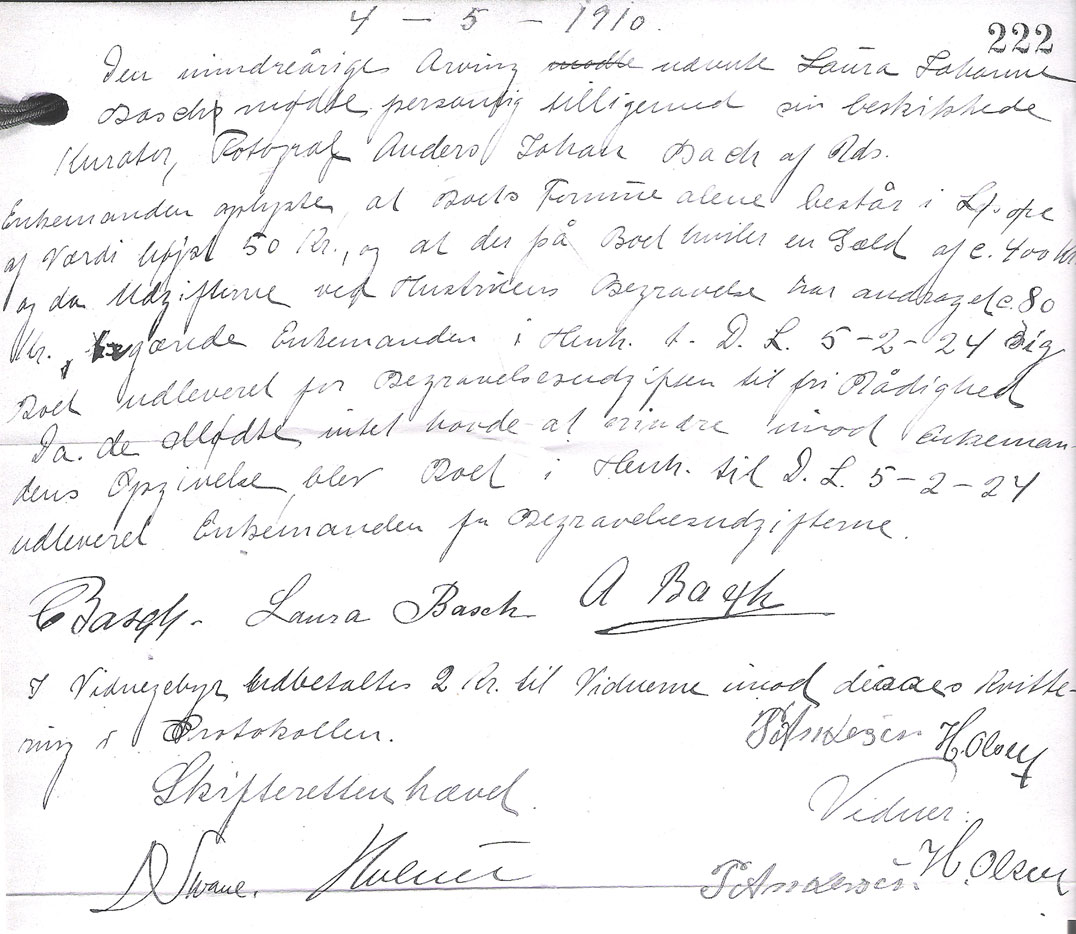 4 - 5 - 1910.
222
Den mindreårige Arving mødte udvnte Laura Johanne
Basch mødte personlig tilligemed sin beskikkede
Kurator, Fotograf Anders Johan Bach af Rds.
Enkemanden oplyste, at Boets Formue alene består i
af Værdi højst 50 Kr., og at der på Boet hviler en Gæld af c. 400 Kr
og da Udgifterne ved Hustruens Begravelse har andraget c. 80
Kr., begærede Enkemanden i Henh. t. D. L. 5-2-24 sig
Boet udleveret for Begravelsesudgiften til fri Rådighed
Da de Mødte intet havde at erindre imod Enkeman-
dens Opgivelse, blev Boet i Henh. til D. L. 5-2-24
udleveret Enkemanden for Begravelsesudgifterne.
Basch. Laura Basch A Bach
I Vidnegebyr udbetaltes 2 Kr. til Vidnerne imod disses Kvitte-
ring i Protokollen.
P Andersen H. Olsen
Skifteretten hævet.
Vidner:
Swane.
P Andersen. H. Olsen